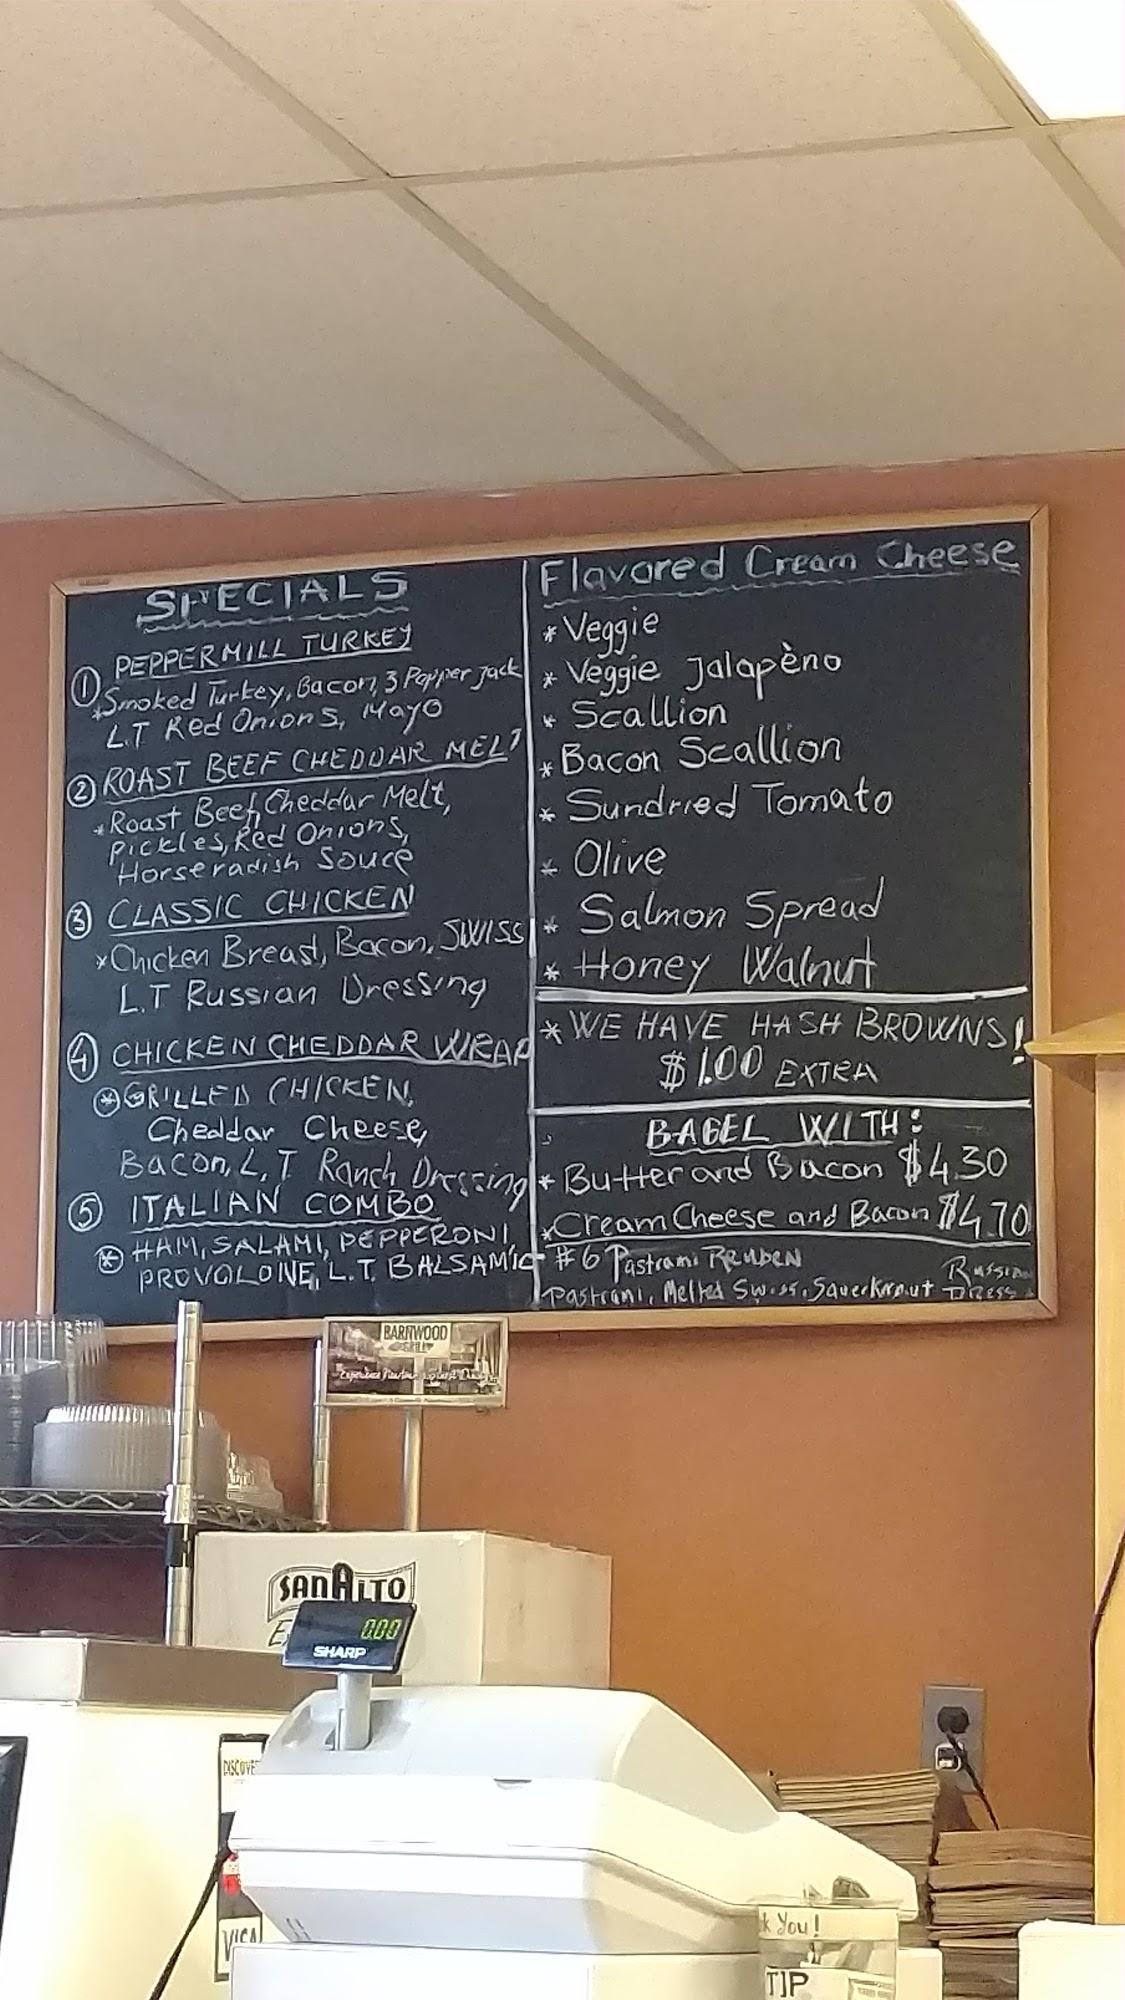 SPECIALS
① PEPPERMILL TURKEY
*Smoked Turkey, Bacon, 3 Pepper jack
L.T Red Onions, Mayo
② ROAST BEEF CHEDDAR MELT
*Roast Beef, Cheddar Melt,
Pickles, Red Onions,
Horseradish Souce
③ CLASSIC CHICKEN
*Chicken Breast, Bacon, SWISS
L.T Russian Dressing
④ CHICKEN CHEDDAR WRAP
*GRILLED CHICKEN,
Cheddar Cheese,
Bacon, L, T Ranch Dressing
⑤ ITALIAN COMBO
* HAM, SALAMI, PEPPERONI,
PROVOLONE, L.T. BALSAMIC
Flavored Cream Cheese
* Veggie
* Veggie Jalapèno
* Scallion
* Bacon Scallion
* Sundried Tomato
* Olive
* Salmon Spread
* Honey Walnut
* WE HAVE HASH BROWNS!
$1.00 EXTRA
BAGEL WITH:
* Butter and Bacon $4.30
* Cream Cheese and Bacon $4.70
#6 Pastrami Reuben
Pastrami, Melted Swiss, Sauerkraut Russian
Dress
BARNWOOD
GRILL
SANALTO
0.00
SHARP
DISCOVE
VISA
k You!
TIP